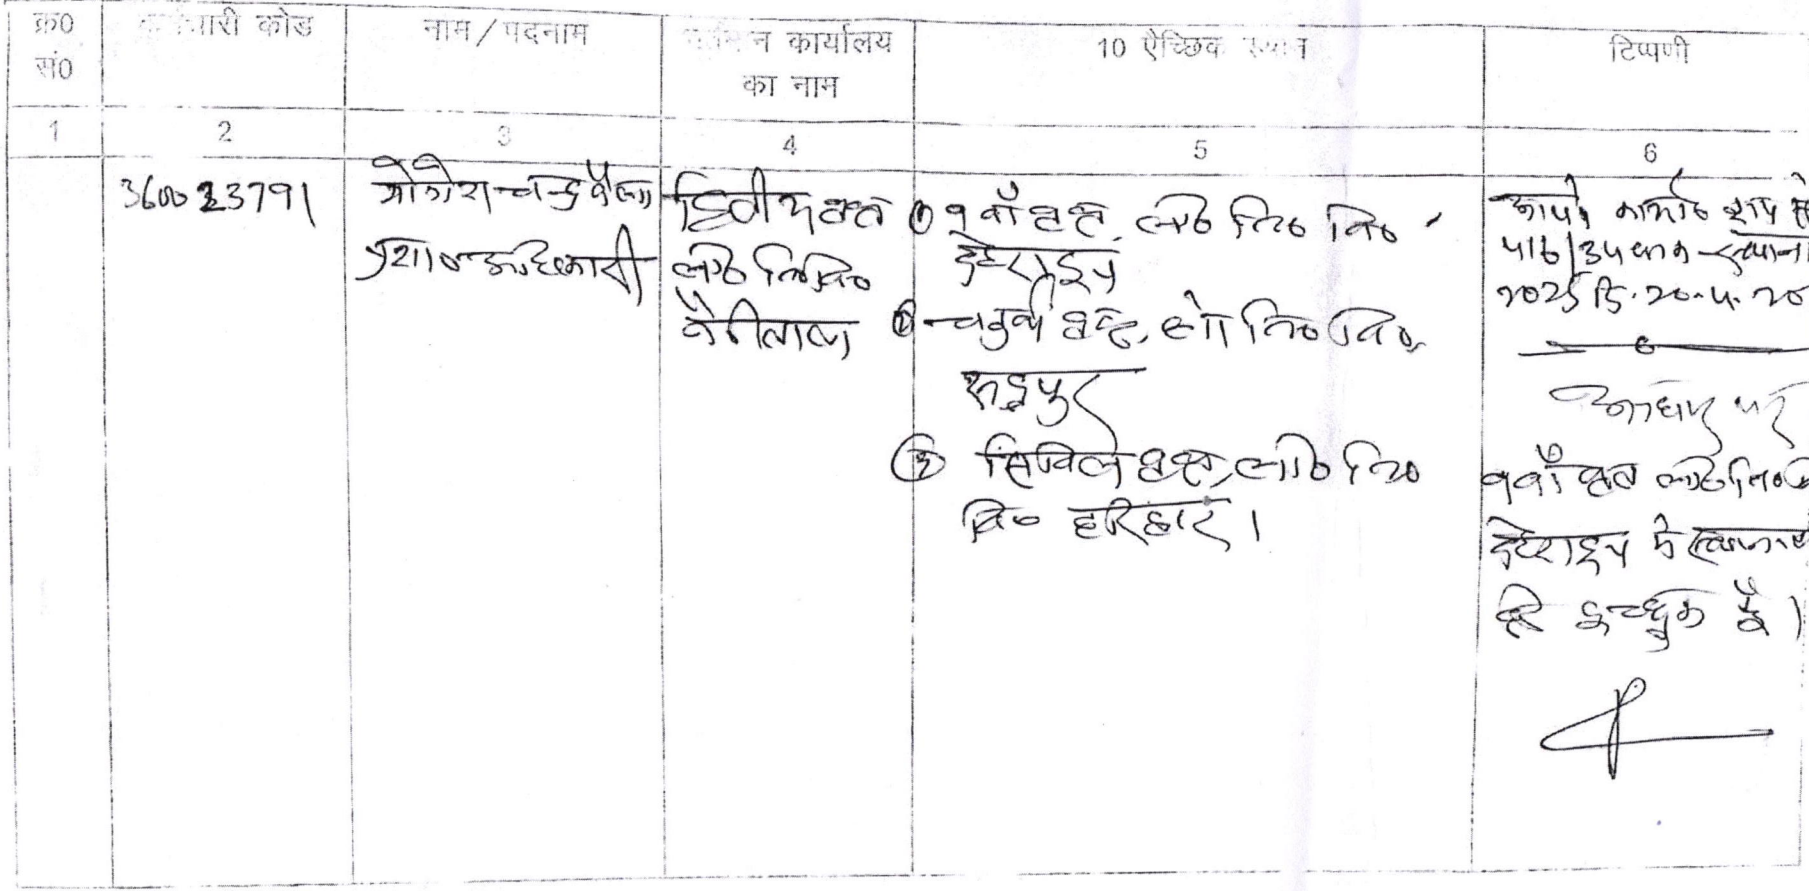 क्र० सं०
कर्मचारी कोड
नाम/पदनाम
वर्तमान कार्यालय का नाम
10 ऐच्छिक स्थान
टिप्पणी
1
2
3
4
5
6
360023791
योगेश चन्द्र
प्रशा० अधिकारी
द्वितीय वृत्त
लो० नि० वि०
नैनीताल
① 9 वाँ वृत्त, लो० नि० वि०
देहरादून
② चतुर्थ वृत्त, लो नि० वि०
रुद्रपुर
③ सिविल वृत्त, लो० नि०
वि० हरिद्वार।
आपके
2025
आधार पर
9वाँ वृत्त लो० नि०
देहरादून में
इच्छुक हूँ।